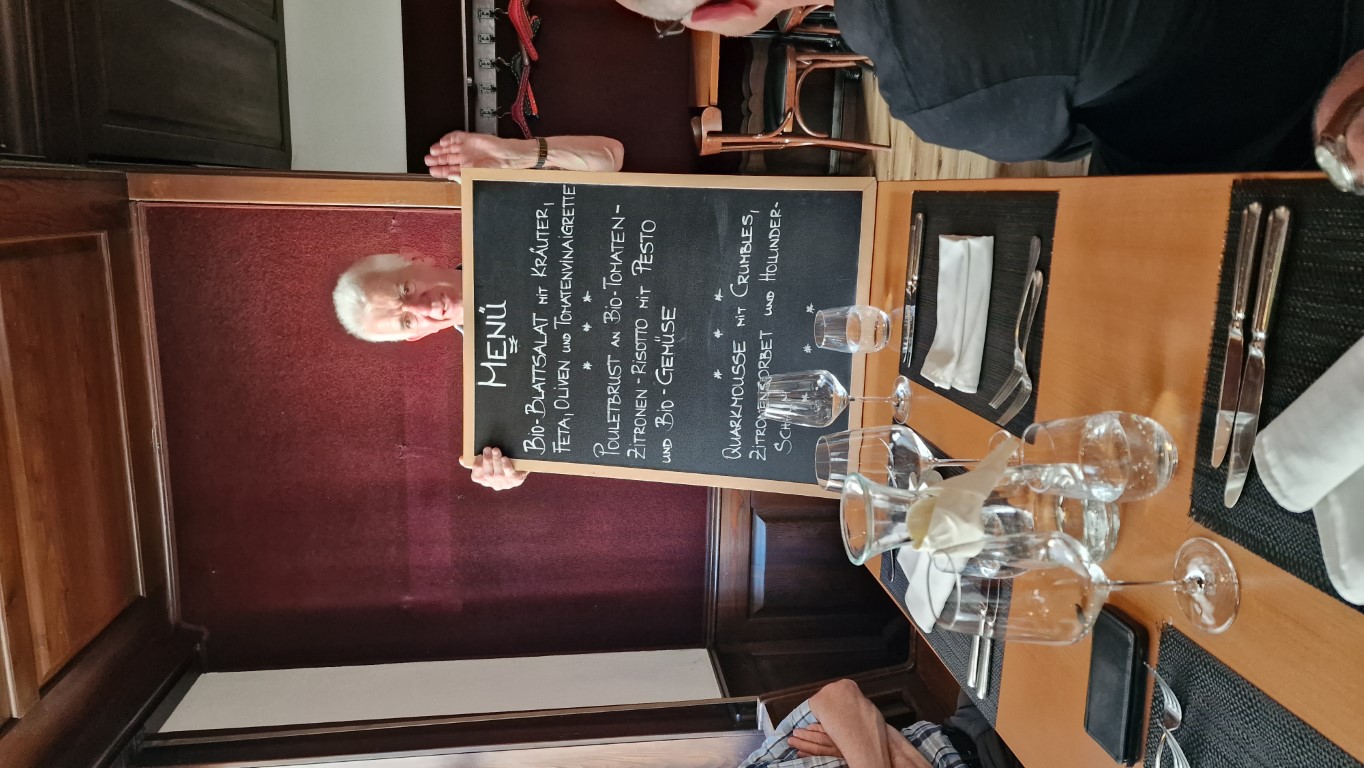 MENÜ
BIO-BLATTSALAT MIT KRÄUTER,
FETA, OLIVEN UND TOMATENVINAIGRETTE
* * *
POULETBRUST AN BIO-TOMATEN-
ZITRONEN-RISOTTO MIT PESTO
UND BIO-GEMÜSE
* * *
QUARKMOUSSE MIT CRUMBLES,
ZITRONENSORBET UND HOLUNDER-